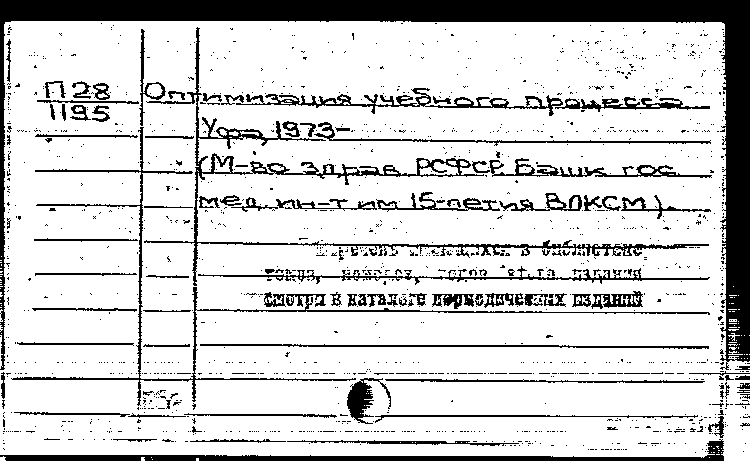 П 28 Оптимизация учебного процесса
1195
Уфа, 1973-
(М-во здрав РСФСР. Башк гос
мед. ин-т им 15-летия ВЛКСМ).
Перечень имеющихся в библиотеке
томов, номеров, годов этого издания
смотри в каталоге периодических изданий